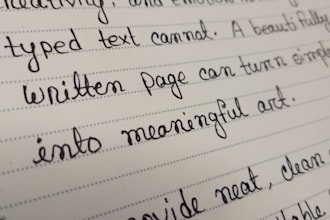 typed text cannot. A beautifully
written page can turn simple
into meaningful art.
provide neat, clean